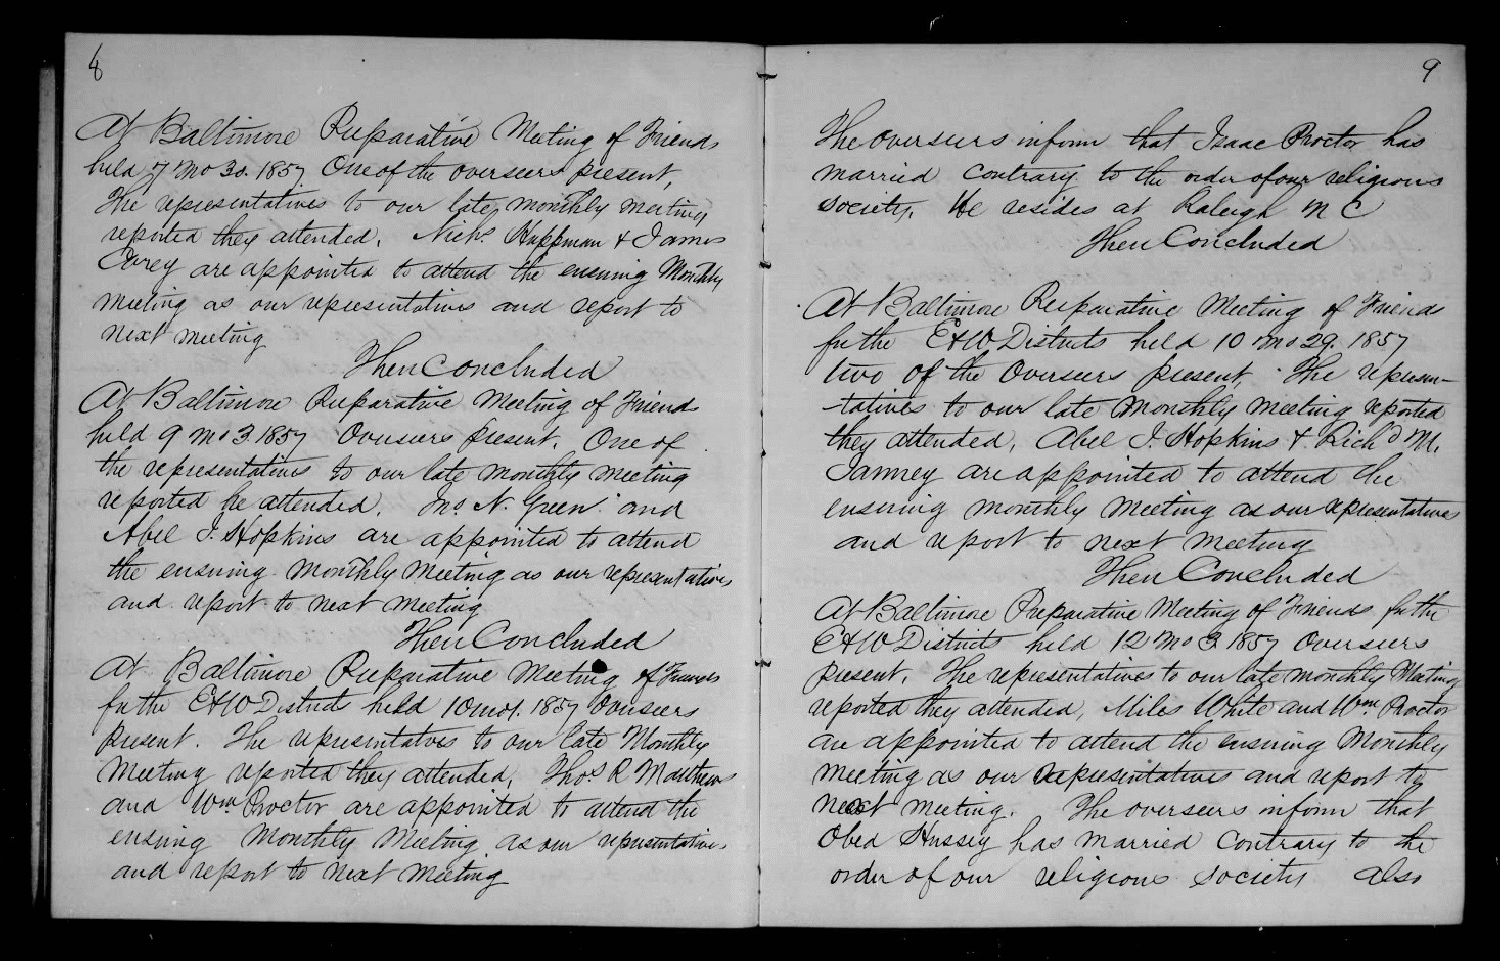 8
At Baltimore Preparative Meeting of Friends
held 7 mo 30. 1857 One of the overseers present,
The representatives to our late monthly meeting
reported they attended. Nichs Happman & James
Carey are appointed to attend the ensuing Monthly
meeting as our representatives and report to
next meeting
Then Concluded
At Baltimore Preparative Meeting of Friends
held 9 mo 3. 1857 Overseers present. One of
the representatives to our late monthly meeting
reported he attended. Jno. N. Green and
Abel J. Hopkins are appointed to attend
the ensuing monthly meeting as our representatives
and report to next meeting
Then Concluded
At Baltimore Preparative Meeting of Friends
for the E & W Districts held 10 mo 1. 1857 Overseers
present. The representatives to our late Monthly
Meeting reported they attended, Thos R Matthews
and Wm Proctor are appointed to attend the
ensuing Monthly Meeting as our representatives
and report to next meeting
9
The overseers inform that Isaac Proctor has
married contrary to the order of our religious
society. He resides at Raleigh N C
Then Concluded
At Baltimore Preparative Meeting of Friends
for the E & W Districts held 10 mo 29. 1857
two of the Overseers present, The represen-
tatives to our late Monthly Meeting reported
they attended, Abel J. Hopkins & Richd M.
Janney are appointed to attend the
ensuing monthly meeting as our representatives
and report to next meeting
Then Concluded
At Baltimore Preparative Meeting of Friends for the
E & W Districts held 12 mo 3. 1857 Overseers
present. The representatives to our late monthly Meeting
reported they attended, Miles White and Wm Proctor
are appointed to attend the ensuing Monthly
meeting as our representatives and report to
next meeting. The overseers inform that
Obed Hussey has married contrary to the
order of our religious society also